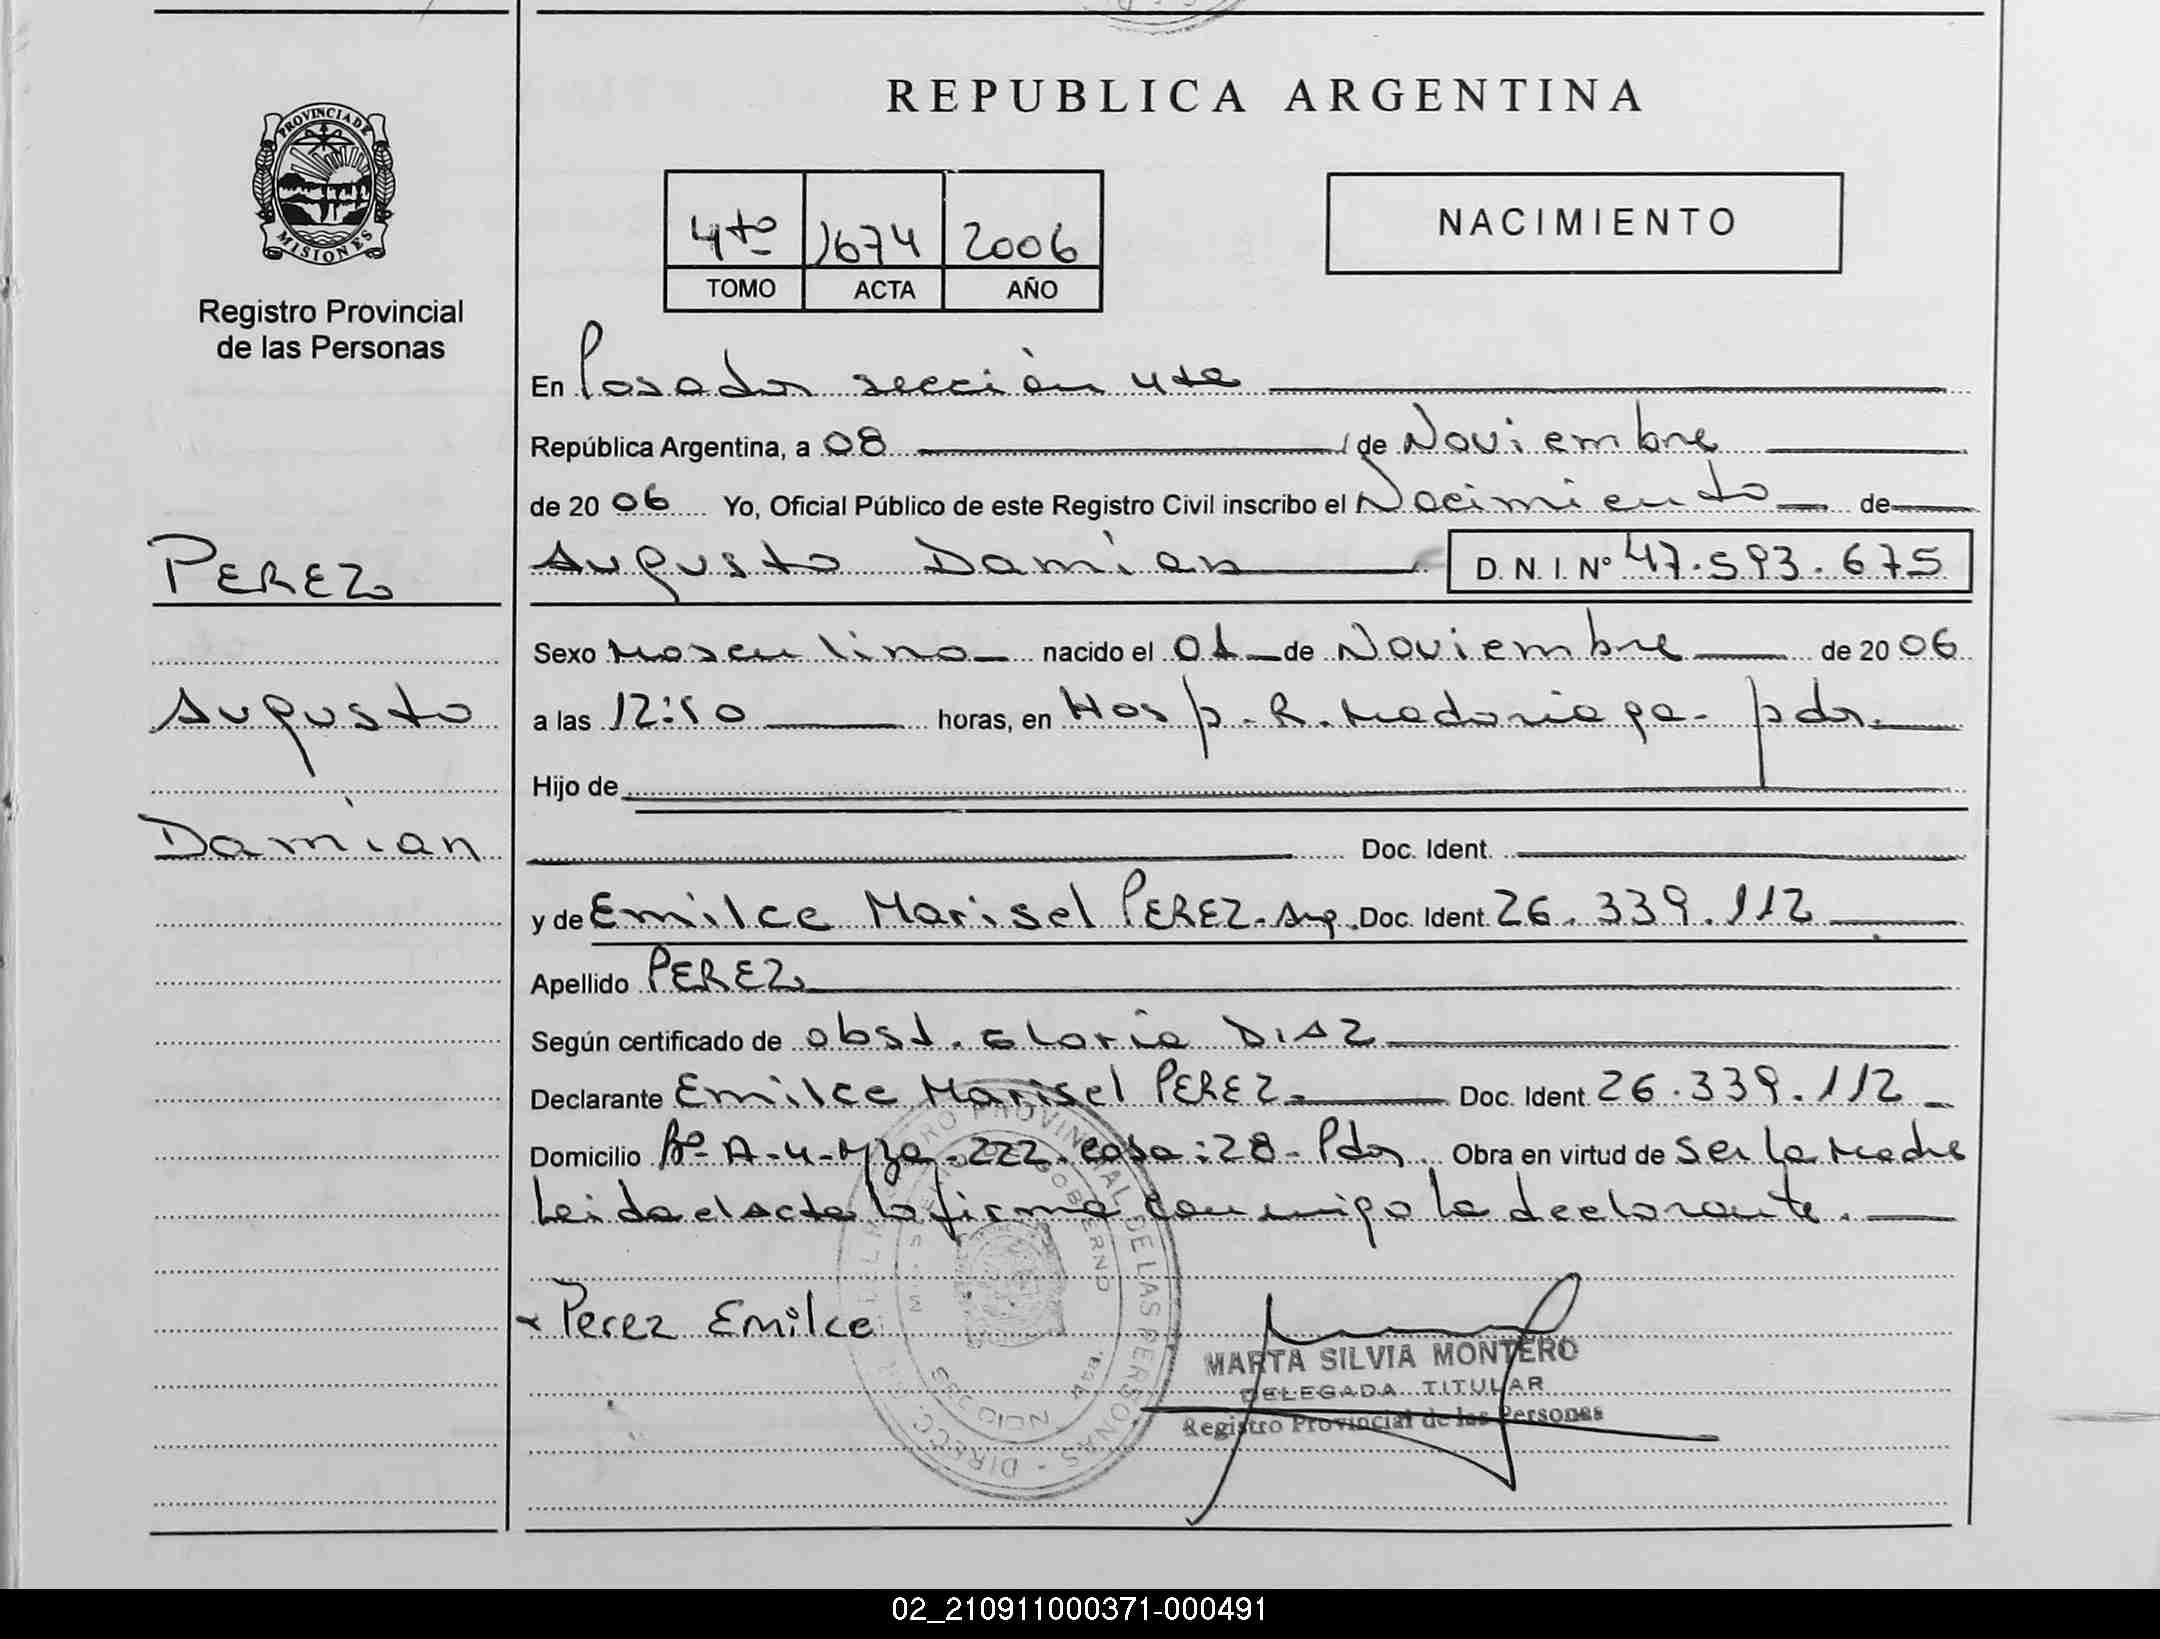 REPUBLICA ARGENTINA
PROVINCIA DE
MISIONES
Registro Provincial
de las Personas
4to 1674 2006
TOMO ACTA AÑO
NACIMIENTO
PEREZ
Augusto
Damian
En Posadas sección 4ta
República Argentina, a 08 de Noviembre
de 2006 Yo, Oficial Público de este Registro Civil inscribo el Nacimiento de
Augusto Damian D.N.I. Nº 47.593.675
Sexo Masculino nacido el 01 de Noviembre de 2006
a las 12:10 horas, en Hosp. R. Madariaga - pdas.
Hijo de
Doc. Ident.
y de Emilce Marisel PEREZ - Arg. Doc. Ident. 26.339.112
Apellido PEREZ
Según certificado de obst. Gloria DIAZ
Declarante Emilce Marisel PEREZ. Doc. Ident. 26.339.112
Domicilio Bº A-4-Mza. 222. casa: 28 - Pdas. Obra en virtud de ser la Madre
Leida el acta la firma conmigo la declarante.
Perez Emilce
MARTA SILVIA MONTERO
DELEGADA TITULAR
Registro Provincial de las Personas
02_210911000371-000491